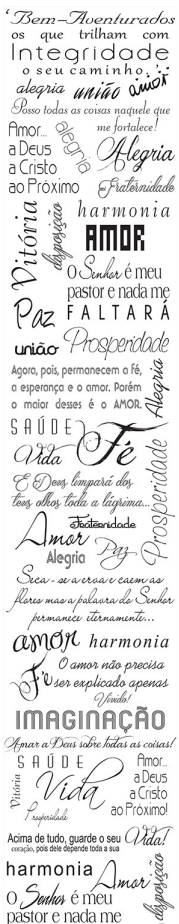 ‘Bem-Aventurados
os que trilham com
Integridade
o seu caminho’
alegria união amor
Posso todas as coisas naquele que
me fortalece!
Amor...
a Deus
a Cristo
ao Próximo
alegria
Alegria
Fraternidade
Vitória
disposição
harmonia
AMOR
O Senhor é meu
pastor e nada me
FALTARÁ
Paz
união
Prosperidade
Agora, pois, permanecem a fé,
a esperança e o amor. Porém
o maior desses é o AMOR.
Alegria
SAÚDE
Fé
Vida
Prosperidade
E Deus limpará dos
teus olhos toda a lágrima...
Amor
Fraternidade
Alegria
Paz
Seca-se a erva e caem as
flores mas a palavra do Senhor
permanece eternamente...
amor harmonia
Fé
O amor não precisa
ser explicado apenas
Vivido!
IMAGINAÇÃO
Amar a Deus sobre todas as coisas!
SAÚDE
Vitória
Vida
Prosperidade
Amor...
a Deus
a Cristo
ao Próximo!
Acima de tudo, guarde o seu
coração, pois dele depende toda a sua
Vida!
harmonia
Amor
disposição
O Senhor é meu
pastor e nada me